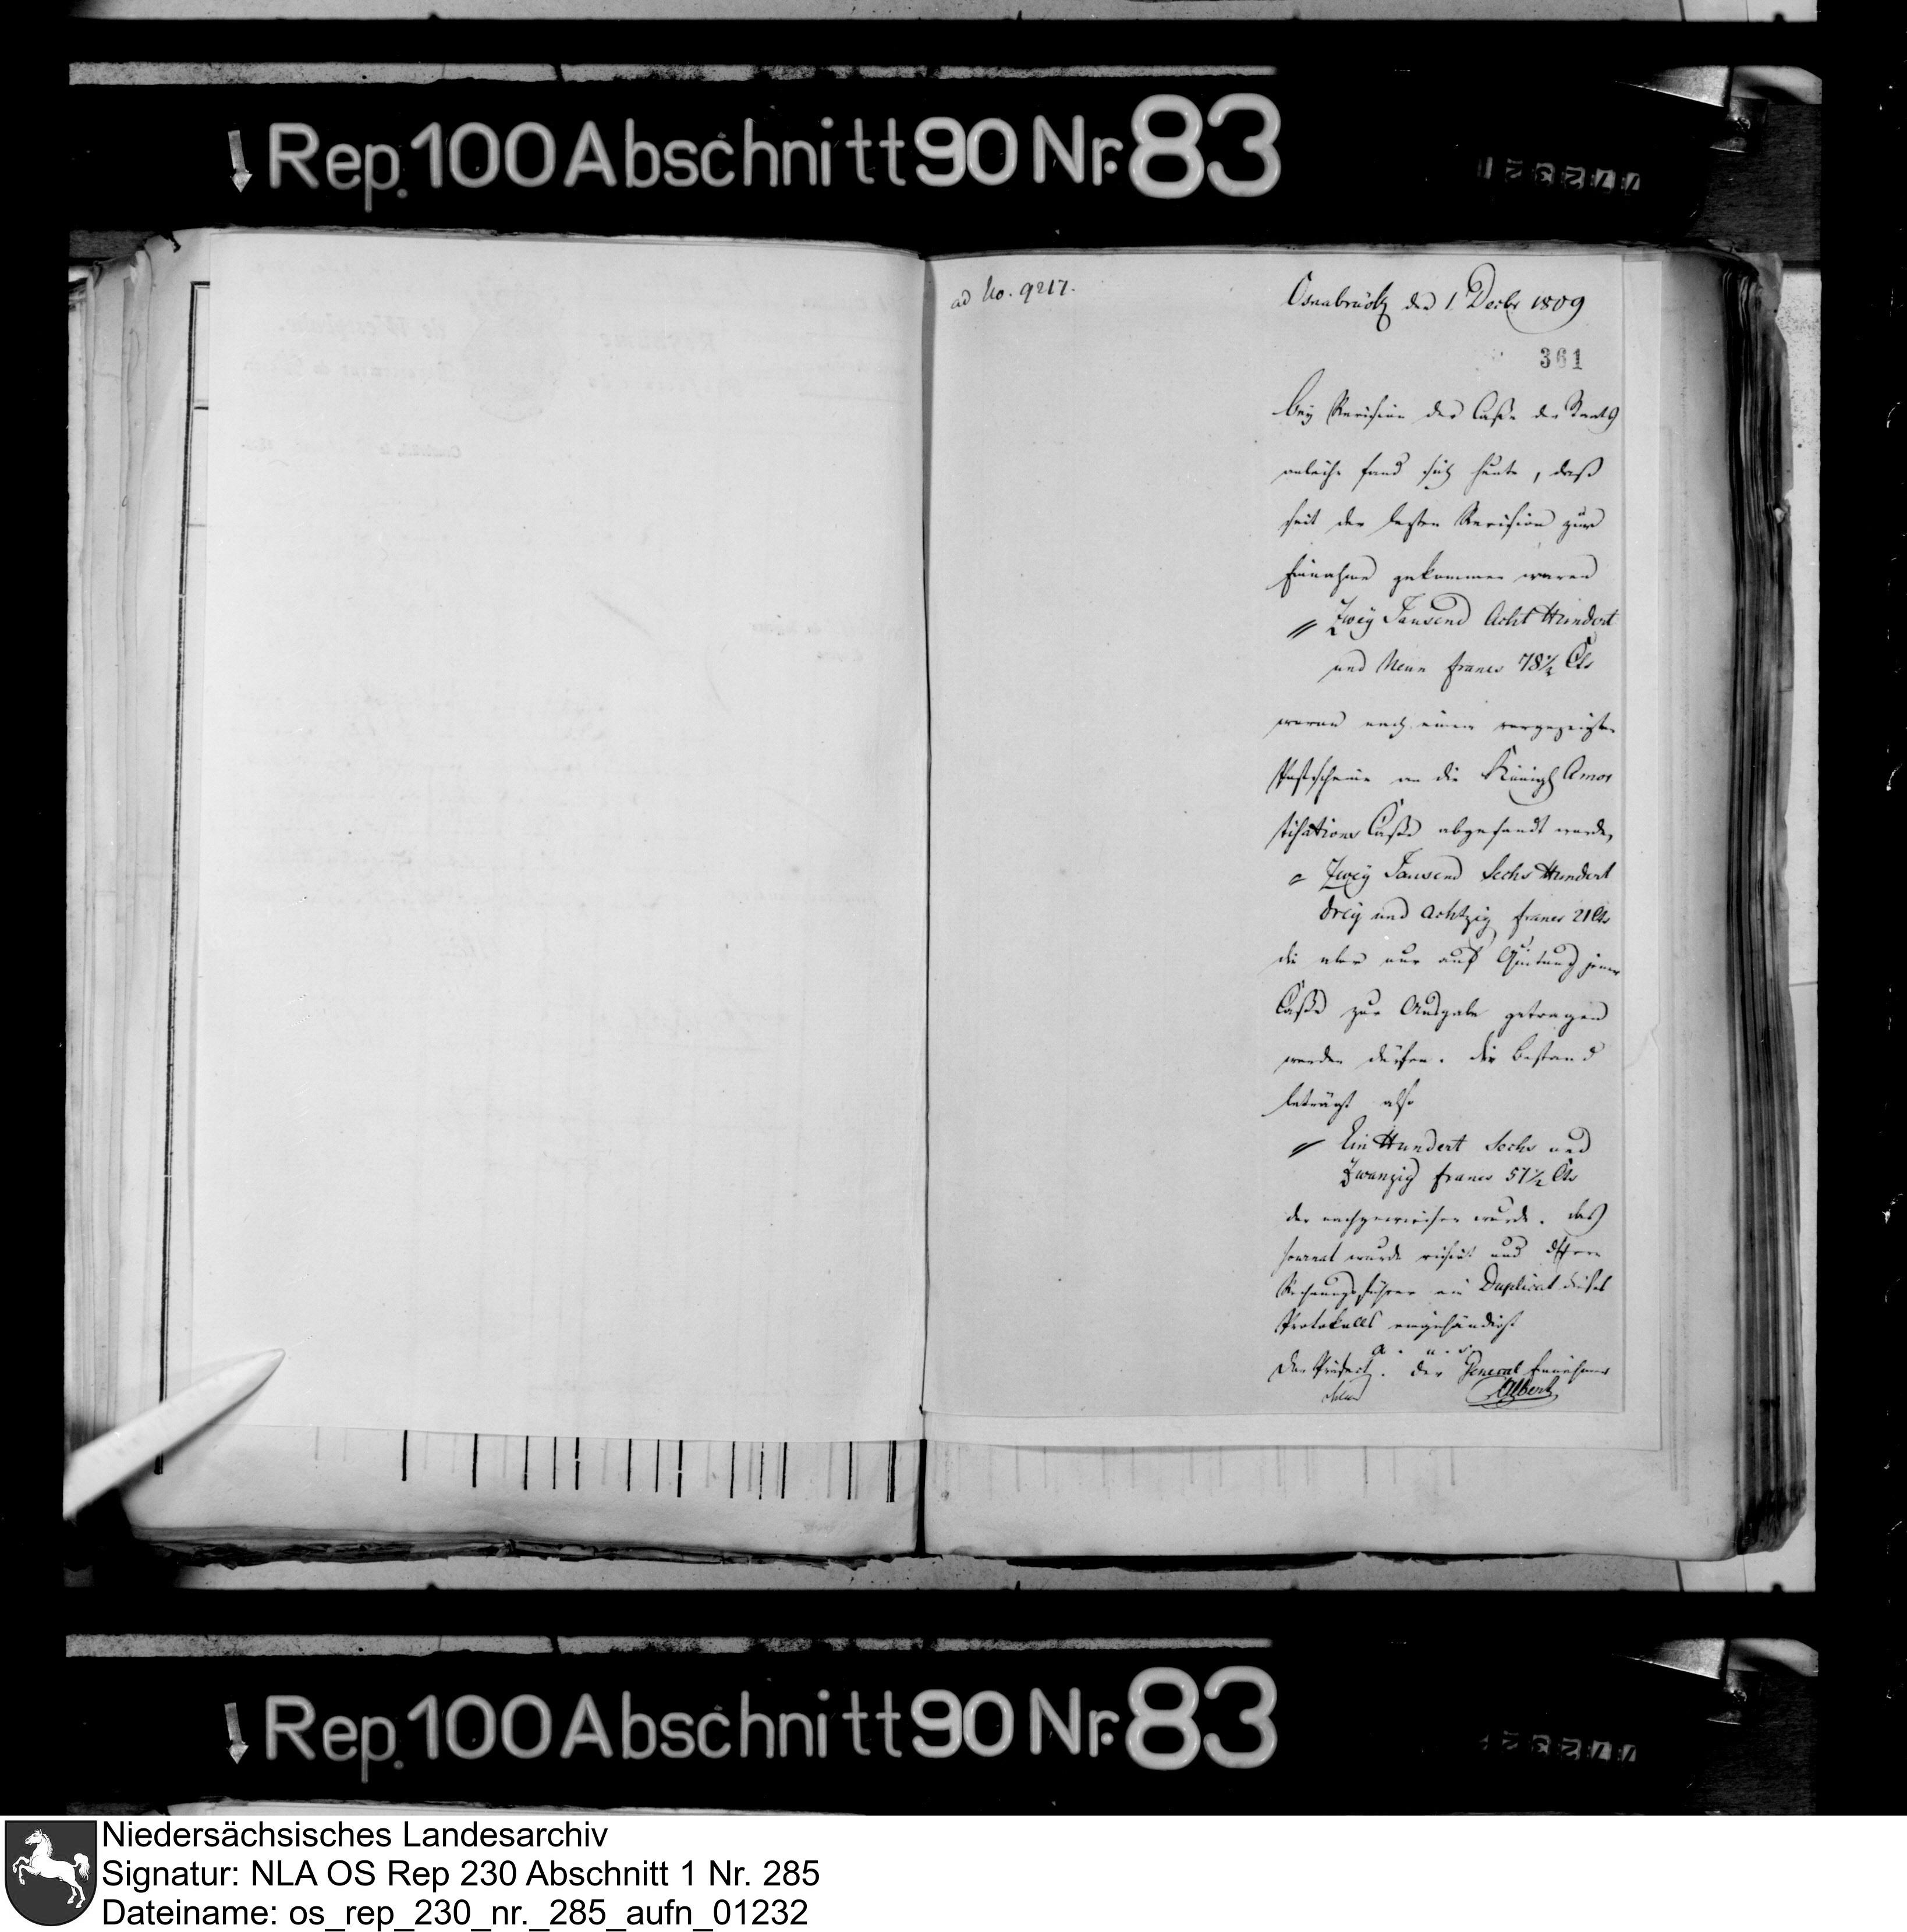 Rep. 100 Abschnitt 90 Nr. 83
ad No. 9217.
Osnabrück den 1. Decbr 1809
361
Bey Revision der Casse der Staats
anleihe fand sich heute, daß
seit der lezten Revision zur
Einnahme gekommen waren
Zwey Tausend Acht Hundert
und Neun francs 78½ Cts
waren nach einem vorgezeigten
Postscheine an die Königl Amor
tisations Casse abgesandt worden
Zwey Tausend Sechs Hundert
drey und Achtzig francs 21 Cts
die aber nur auf Quitung jener
Casse zur Ausgabe getragen
werden dürfen. Der Bestand
beträgt also
Ein Hundert Sechs und
Zwanzig francs 57½ Cts
der nachgewiesen wurde. Das
Journal wurde visirt und dem
Rechnungsführer ein Duplicat dieses
Protokolls eingehändigt
a. u. s.
Der Präfect. Der General Einnehmer
Rep. 100 Abschnitt 90 Nr. 83
Niedersächsisches Landesarchiv
Signatur: NLA OS Rep 230 Abschnitt 1 Nr. 285
Dateiname: os_rep_230_nr._285_aufn_01232